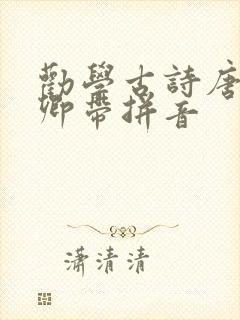 勸學古詩唐
卿帶拼音
瀟清清